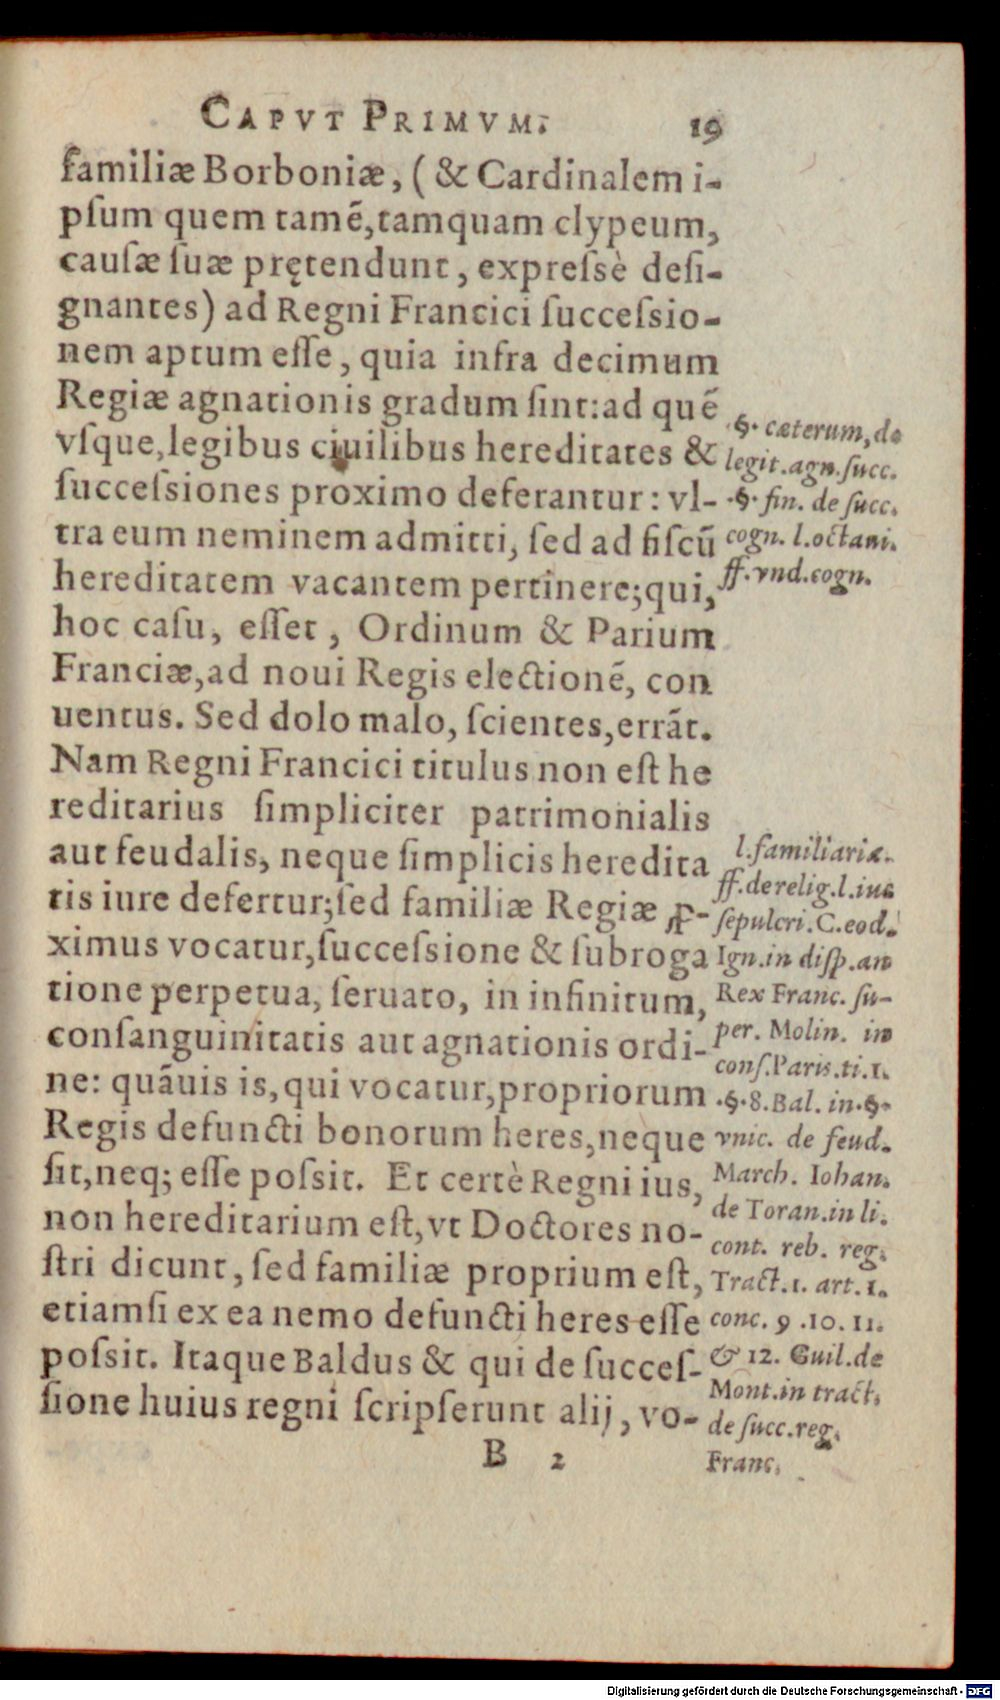 CAPVT PRIMVM. 19
familiæ Borboniæ, (& Cardinalem i-
pſum quem tamẽ, tamquam clypeum,
cauſæ ſuæ prętendunt, expreſsè deſi-
gnantes) ad Regni Francici ſucceſsio-
nem aptum eſſe, quia infra decimum
Regiæ agnationis gradum ſint: ad quẽ
vſque, legibus ciuilibus hereditates &
ſucceſsiones proximo deferantur: vl-
tra eum neminem admitti, ſed ad fiſcũ
hereditatem vacantem pertinere; qui,
hoc caſu, eſſet, Ordinum & Parium
Franciæ, ad noui Regis electionẽ, con
uentus. Sed dolo malo, ſcientes, errãt.
Nam Regni Francici titulus non eſt he
reditarius ſimpliciter patrimonialis
aut feudalis, neque ſimplicis heredita
tis iure defertur; ſed familiæ Regiæ ꝓ-
ximus vocatur, ſucceſsione & ſubroga
tione perpetua, ſeruato, in infinitum,
conſanguinitatis aut agnationis ordi-
ne: quãuis is, qui vocatur, propriorum
Regis defuncti bonorum heres, neque
ſit, neq; eſſe poſsit. Et certè Regni ius,
non hereditarium eſt, vt Doctores no-
ſtri dicunt, ſed familiæ proprium eſt,
etiamſi ex ea nemo defuncti heres eſſe
poſsit. Itaque Baldus & qui de ſucceſ-
ſione huius regni ſcripſerunt alij, vo-
B 2
§. cæterum, de
legit. agn. ſucc.
§. fin. de ſucc.
cogn. l. octaui.
ff. vnd. cogn.
l. familiaria.
ff. de relig. l. ius
ſepulcri. C. eod.
Ign. in diſp. an
Rex Franc. ſu-
per. Molin. in
conſ. Paris. ti. 1.
§. 8. Bal. in §.
vnic. de feud.
March. Iohan.
de Toran. in li.
cont. reb. reg.
Tract. 1. art. 1.
conc. 9. 10. 11.
& 12. Guil. de
Mont. in tract.
de ſucc. reg.
Franc.
Digitalisierung gefördert durch die Deutsche Forschungsgemeinschaft - DFG